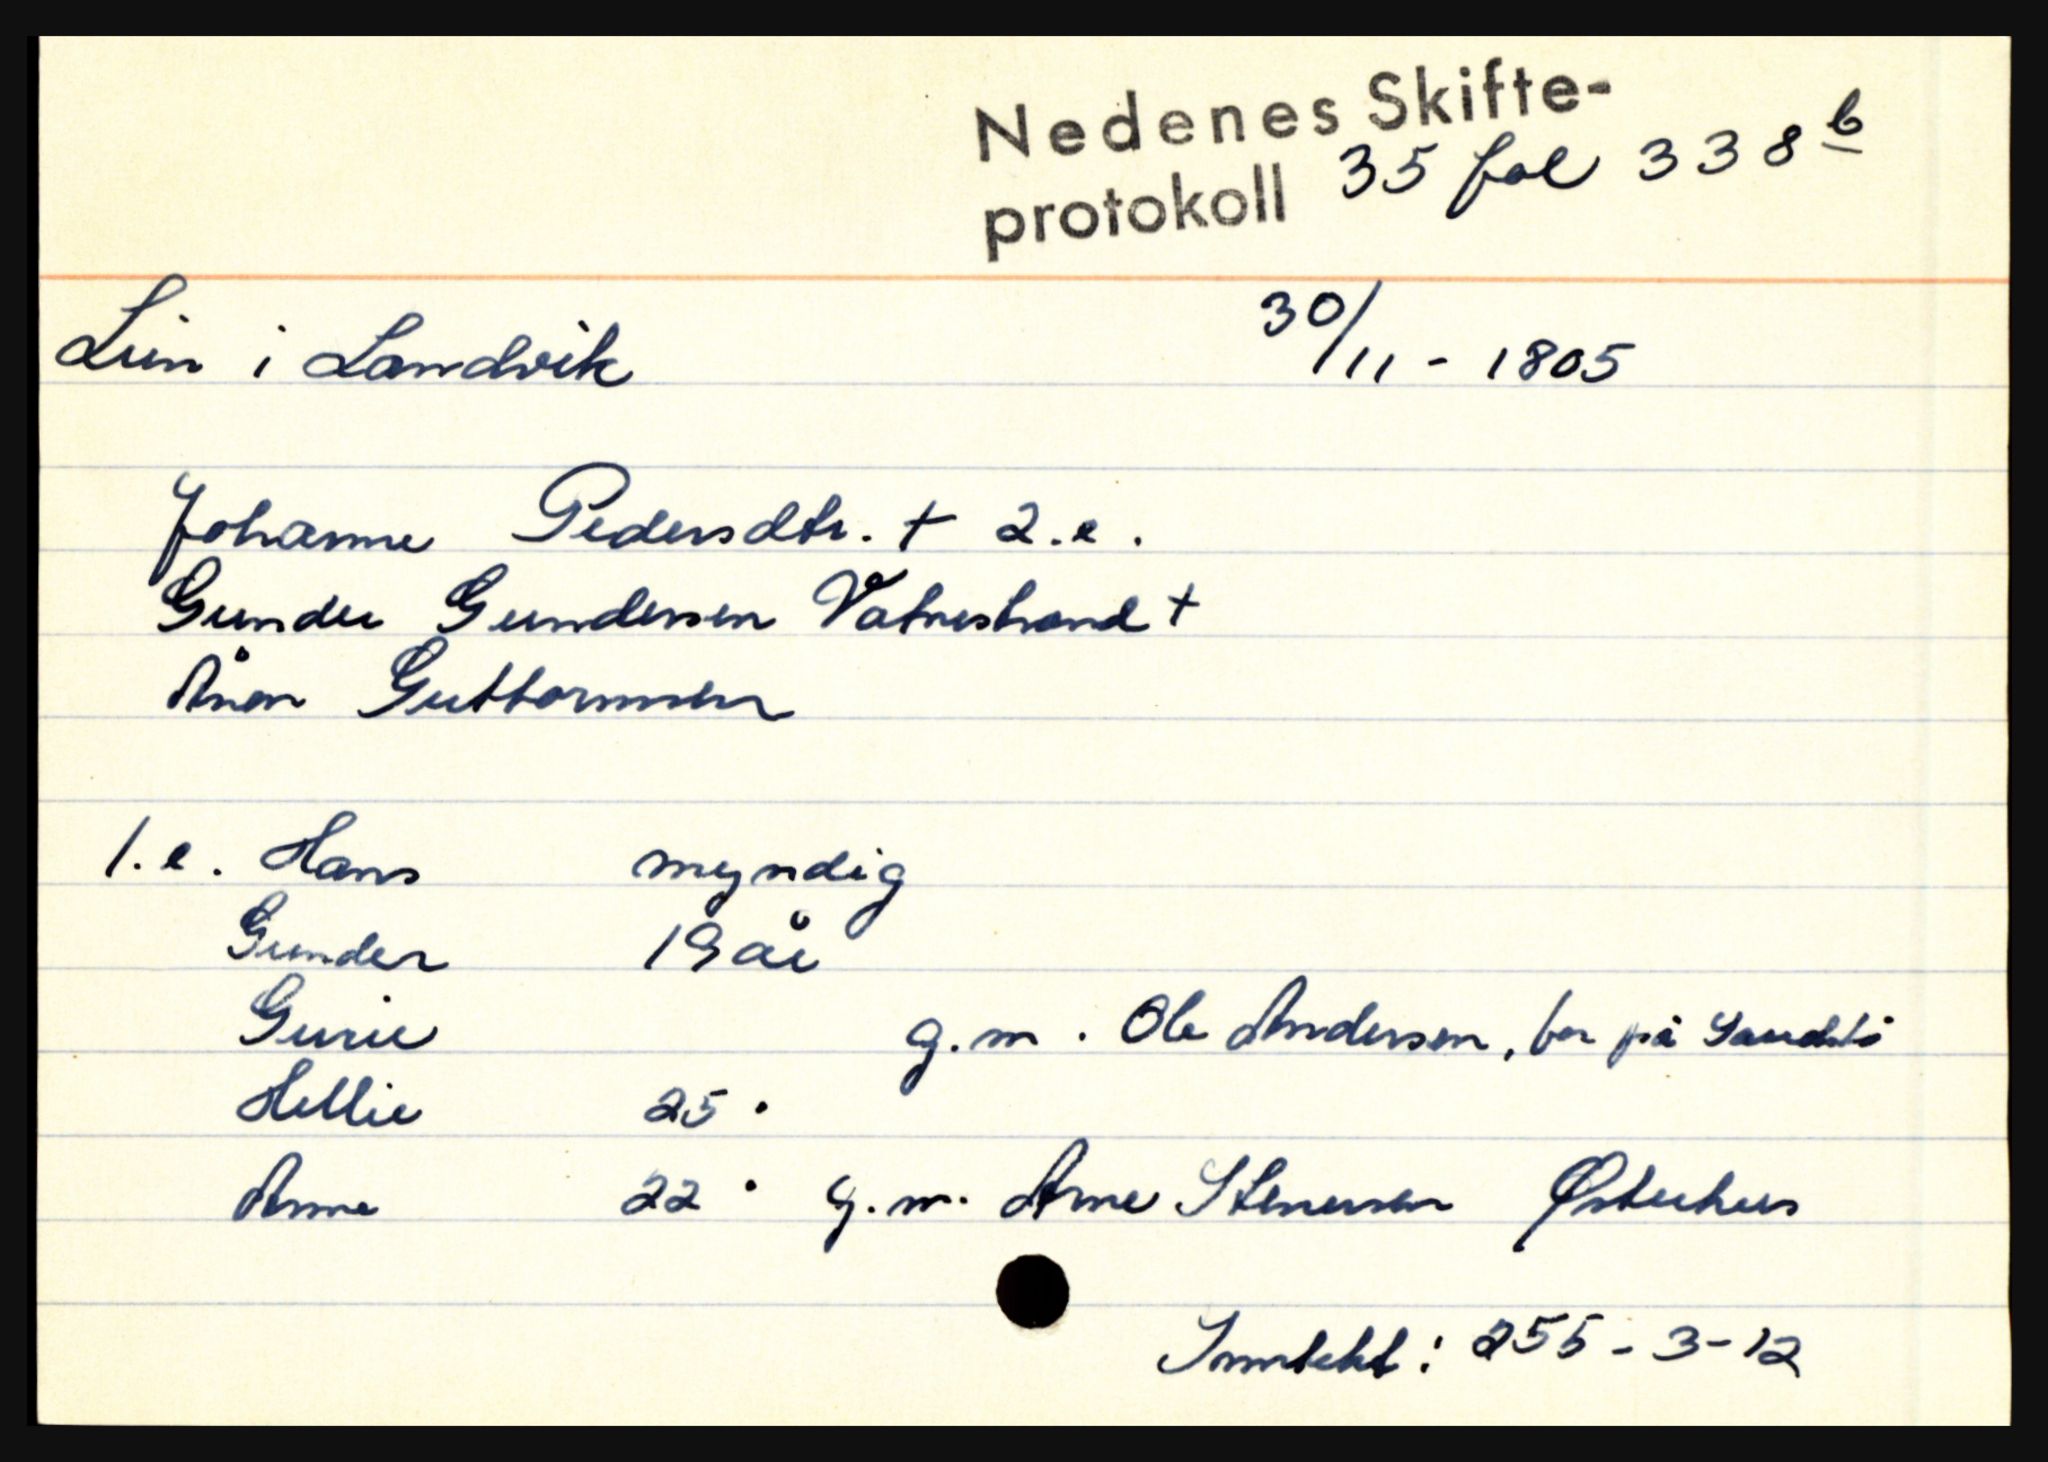 Nedenes Skifte-
protokoll 35 fol 338 b
Lien i Landvik 30/11 - 1805
Johanne Pedersdtr. + 2.e.
Gunder Gundersen Vatnestrand +
Ånon Guttormsen
1.e. Hans myndig
Gunder 19 år
Gurie g.m. Ole Andersen, bor på
Hellie 25 "
Anne 22 " g.m. Arne Stenersen Østerhus
Inntekt: 255-3-12